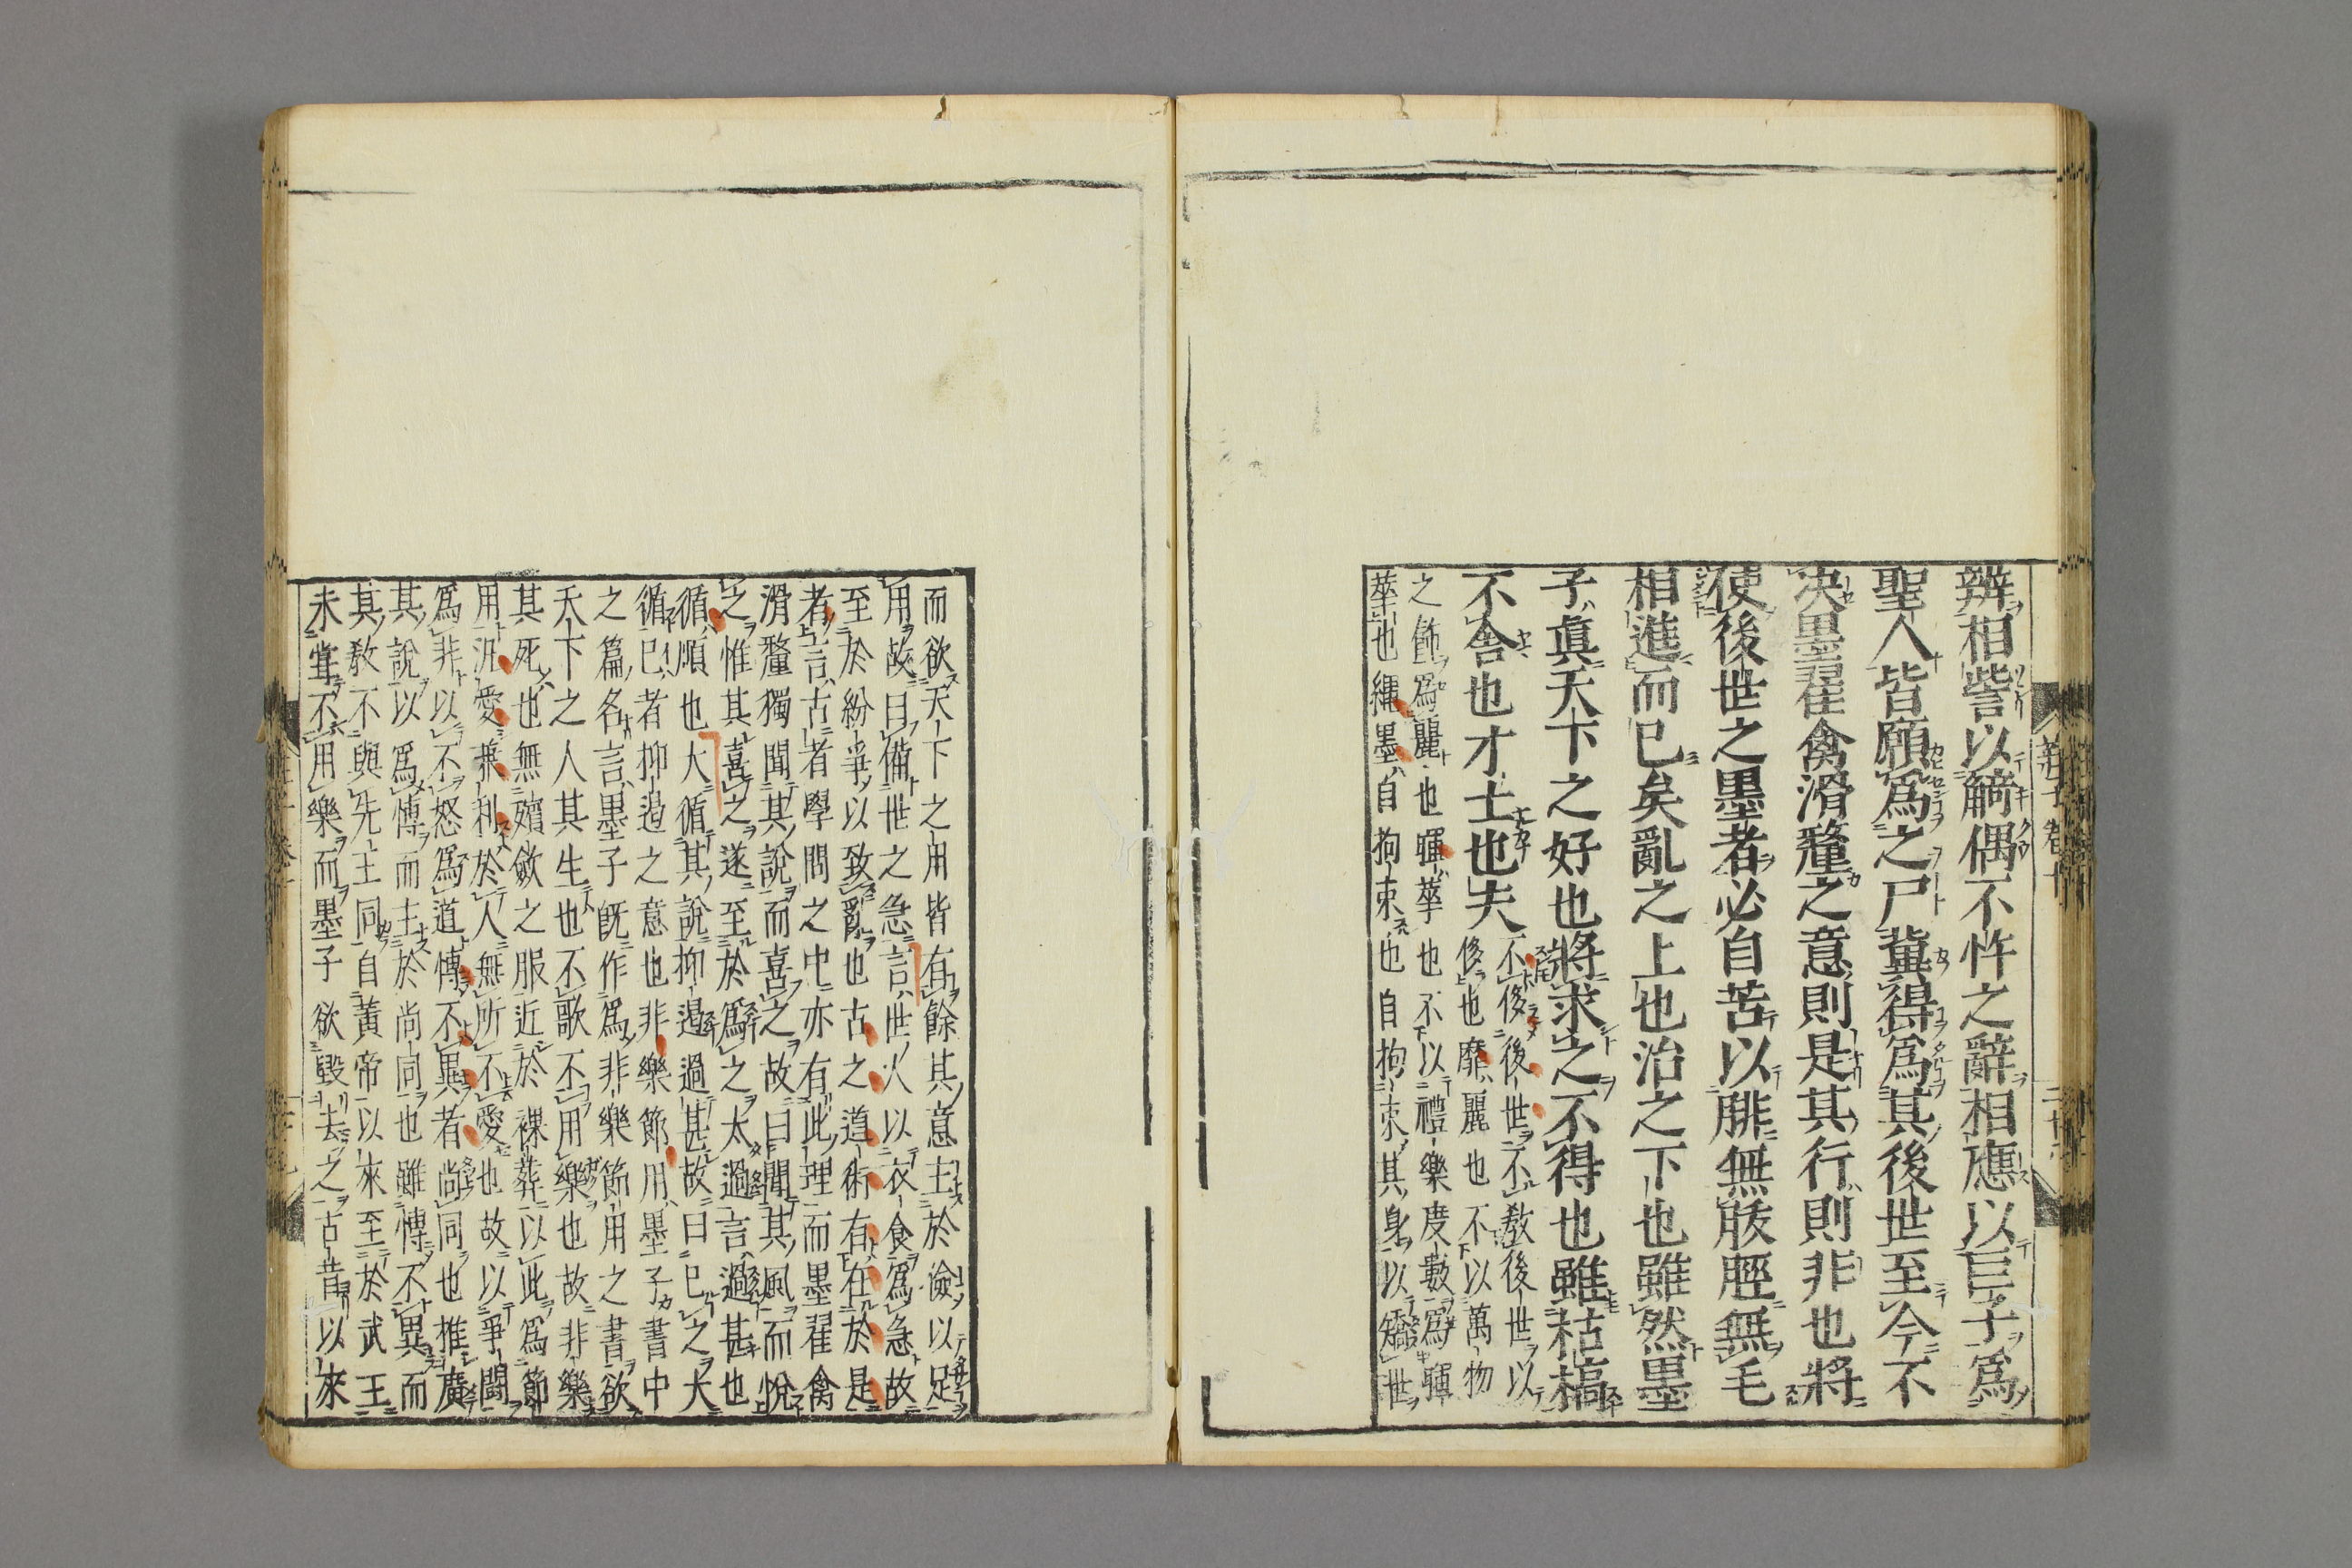 辨相訾以觭偶不忤之辭相應以巨子爲
聖人皆願爲之尸冀得爲其後世至今不
决墨翟禽滑釐之意則是其行則非也將
使後世之墨者必自苦以腓無胈脛無毛
相進而已矣亂之上也治之下也雖然墨
子眞天下之好也將求之不得也雖枯槁
不舍也才士也夫
不侈後世不教後世以
侈也靡麗也不以萬物
之飾爲麗也暉華也不以禮樂度數爲暉
華也繩墨自拘束也自拘束其身以矯世
而欲天下之用皆有餘其意主於儉以足
用故曰備世之急言世人以衣食爲急故
至於紛爭以致亂也古之道術有在於是
者言古者學問之中亦有此理而墨翟禽
滑釐獨聞其說而喜之故曰聞其風而悅
之惟其喜之遂至於爲之太過言過甚也
循順也大循其說抑遏過甚故曰已之大
循已者抑遏之意也非樂節用墨子書中
之篇名言墨子旣作爲非樂節用之書欲
天下之人其生也不歌不用樂也故非樂
其死也無殯斂之服近於裸葬以此爲節
用汎愛兼利於人無所不愛也故以爭鬪
爲非以不怒爲道博不異者尚同也推廣
其說以爲博而主於尚同也雖博不異而
其教不與先王同自黃帝以來至於武王
未嘗不用樂而墨子欲毀去之古昔以來